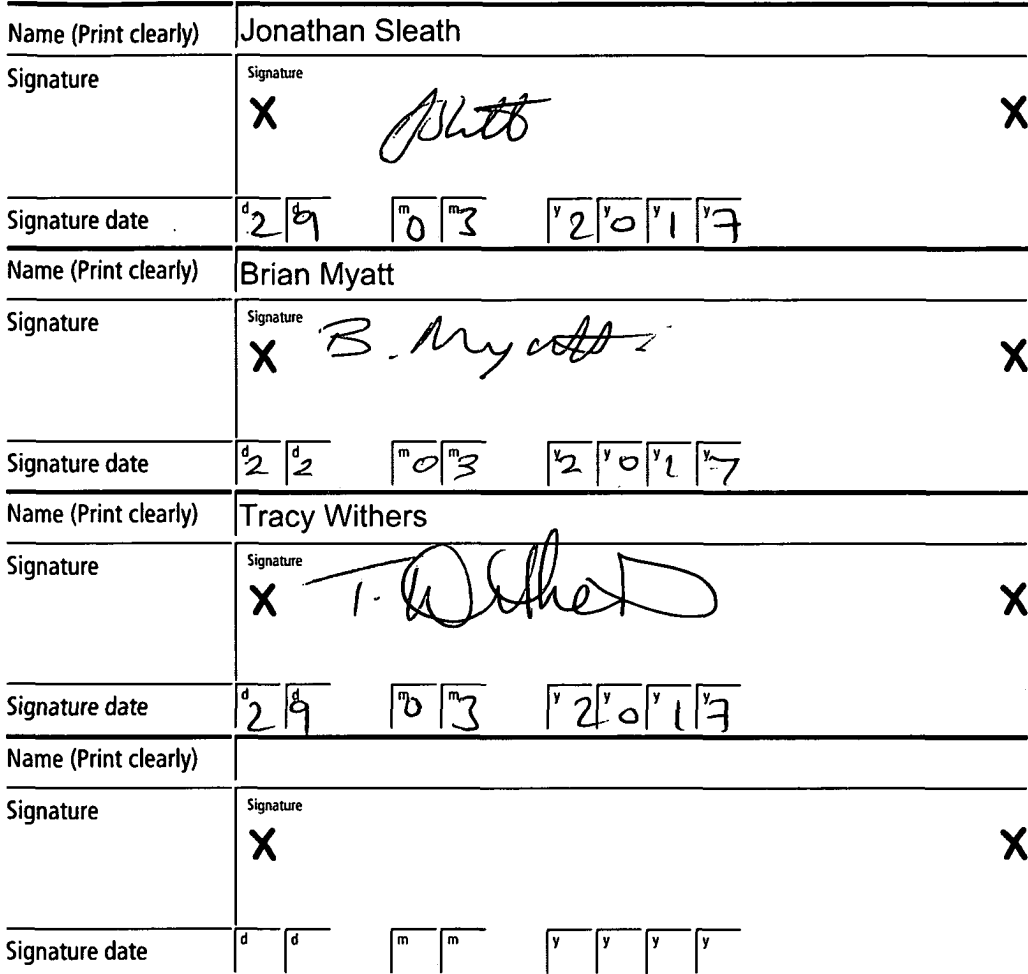 Name (Print clearly) Jonathan Sleath
Signature Signature
X X
Signature date d 2 d 9 m 0 m 3 y 2 y 0 y 1 y 7
Name (Print clearly) Brian Myatt
Signature Signature
X B. Myatt X
Signature date d 2 d 2 m 0 m 3 y 2 y 0 y 1 y 7
Name (Print clearly) Tracy Withers
Signature Signature
X T. Withers X
Signature date d 2 d 9 m 0 m 3 y 2 y 0 y 1 y 7
Name (Print clearly)
Signature Signature
X X
Signature date d d m m y y y y